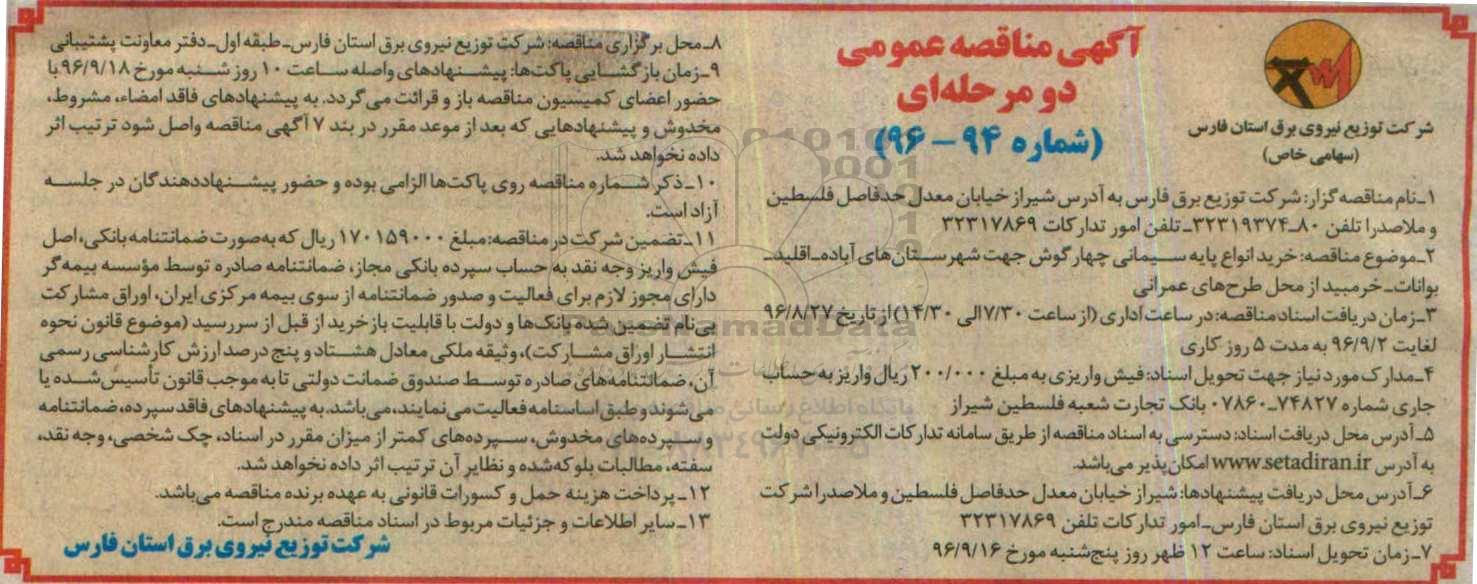 آگهی مناقصه عمومی
دو مرحله‌ای
(شماره ۹۴ – ۹۶)
شرکت توزیع نیروی برق استان فارس
(سهامی خاص)
۱ـ نام مناقصه گزار: شرکت توزیع برق فارس به آدرس شیراز خیابان معدل حدفاصل فلسطین
و ملاصدرا تلفن ۸۰ـ۳۲۳۱۹۳۷۴ـ تلفن امور تدارکات ۳۲۳۱۷۸۶۹
۲ـ موضوع مناقصه: خرید انواع پایه سیمانی چهار گوش جهت شهرستان‌های آباده ـ اقلید ـ
بوانات ـ خرمبید از محل طرح‌های عمرانی
۳ـ زمان دریافت اسناد مناقصه: در ساعت اداری (از ساعت ۷/۳۰ الی ۱۴/۳۰) از تاریخ ۹۶/۸/۲۷
لغایت ۹۶/۹/۲ به مدت ۵ روز کاری
۴ـ مدارک مورد نیاز جهت تحویل اسناد: فیش واریزی به مبلغ ۲۰۰/۰۰۰ ریال واریز به حساب
جاری شماره ۷۴۸۲۷ـ۰۷۸۶۰ بانک تجارت شعبه فلسطین شیراز
۵ـ آدرس محل دریافت اسناد: دسترسی به اسناد مناقصه از طریق سامانه تدارکات الکترونیکی دولت
به آدرس www.setadiran.ir امکان‌پذیر می‌باشد.
۶ـ آدرس محل دریافت پیشنهادها: شیراز خیابان معدل حدفاصل فلسطین و ملاصدرا شرکت
توزیع نیروی برق استان فارس ـ امور تدارکات تلفن ۳۲۳۱۷۸۶۹
۷ـ زمان تحویل اسناد: ساعت ۱۲ ظهر روز پنج‌شنبه مورخ ۹۶/۹/۱۶
۸ـ محل برگزاری مناقصه: شرکت توزیع نیروی برق استان فارس ـ طبقه اول ـ دفتر معاونت پشتیبانی
۹ـ زمان بازگشایی پاکت‌ها: پیشنهادهای واصله ساعت ۱۰ روز شنبه مورخ ۹۶/۹/۱۸ با
حضور اعضای کمیسیون مناقصه باز و قرائت می‌گردد. به پیشنهادهای فاقد امضاء، مشروط،
مخدوش و پیشنهادهایی که بعد از موعد مقرر در بند ۷ آگهی مناقصه واصل شود ترتیب اثر
داده نخواهد شد.
۱۰ـ ذکر شماره مناقصه روی پاکت‌ها الزامی بوده و حضور پیشنهاددهندگان در جلسه
آزاد است.
۱۱ـ تضمین شرکت در مناقصه: مبلغ ۱۷۰۱۵۹۰۰۰ ریال که به‌صورت ضمانتنامه بانکی، اصل
فیش واریز وجه نقد به حساب سپرده بانکی مجاز، ضمانتنامه صادره توسط مؤسسه بیمه‌گر
دارای مجوز لازم برای فعالیت و صدور ضمانتنامه از سوی بیمه مرکزی ایران، اوراق مشارکت
بی‌نام تضمین شده بانک‌ها و دولت با قابلیت بازخرید از قبل از سررسید (موضوع قانون نحوه
انتشار اوراق مشارکت)، وثیقه ملکی معادل هشتاد و پنج درصد ارزش کارشناسی رسمی
آن، ضمانتنامه‌های صادره توسط صندوق ضمانت دولتی تا به موجب قانون تأسیس شده یا
می‌شوند و طبق اساسنامه فعالیت می‌نمایند، می‌باشد. به پیشنهادهای فاقد سپرده، ضمانتنامه
و سپرده‌های مخدوش، سپرده‌های کمتر از میزان مقرر در اسناد، چک شخصی، وجه نقد،
سفته، مطالبات بلوکه‌شده و نظایر آن ترتیب اثر داده نخواهد شد.
۱۲ـ پرداخت هزینه حمل و کسورات قانونی به عهده برنده مناقصه می‌باشد.
۱۳ـ سایر اطلاعات و جزئیات مربوط در اسناد مناقصه مندرج است.
شرکت توزیع نیروی برق استان فارس